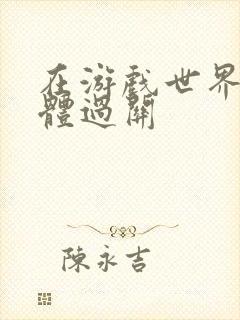 在游戲世界
體過關
陳永吉